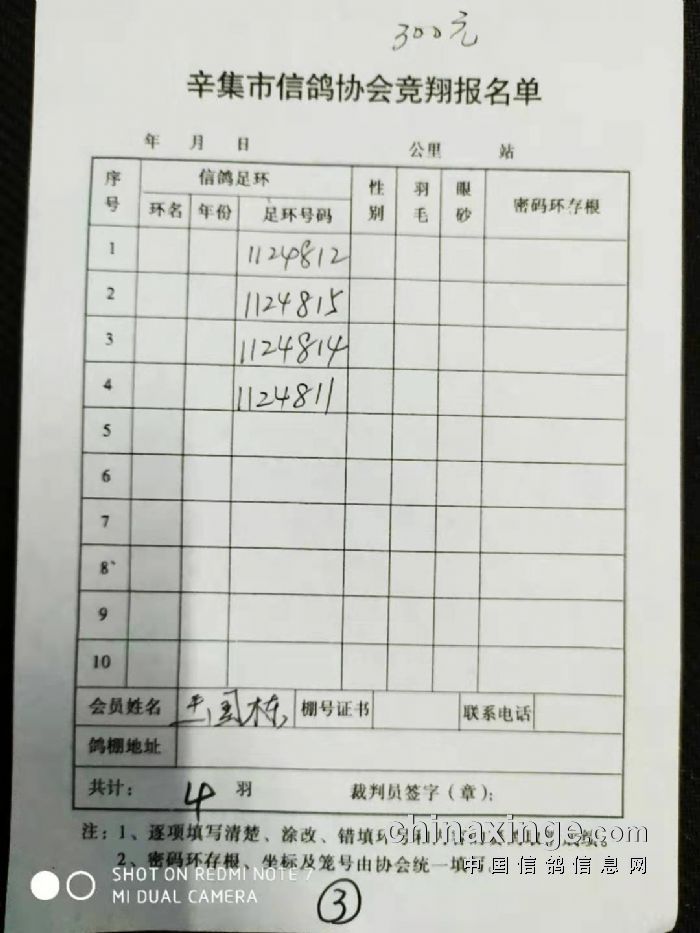 300元
辛集市信鸽协会竞翔报名单
年 月 日 公里 站
序号 信鸽足环 性别 羽毛 眼砂 密码环存根
环名 年份 足环号码
1 1124812
2 1124815
3 1124814
4 1124811
5
6
7
8
9
10
会员姓名 国栋 棚号证书 联系电话
鸽棚地址
共计: 4 羽 裁判员签字(章):
注:1、逐项填写清楚、涂改、错填环号
2、密码环存根、坐标及笼号由协会统一填写。
chinaxinge.com
中国信鸽信息网
SHOT ON REDMI NOTE 7
MI DUAL CAMERA
③